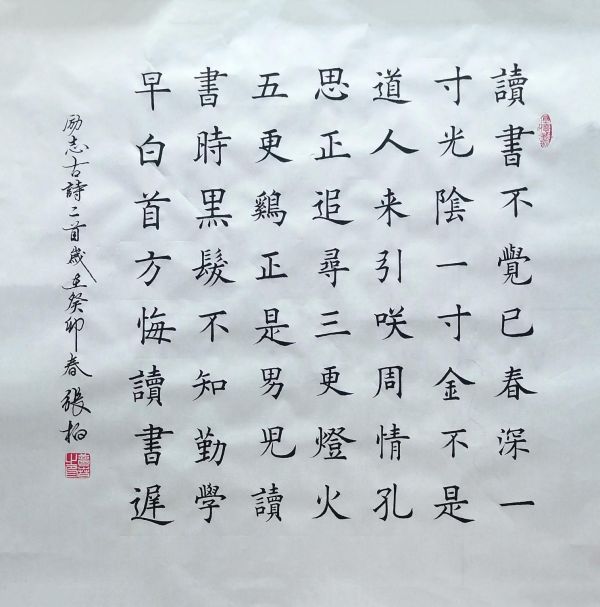 讀書不覺已春深一
寸光陰一寸金不是
道人来引咲周情孔
思正追尋三更燈火
五更鷄正是男兒讀
書時黒髮不知勤學
早白首方悔讀書遲
励志古詩二首歲在癸卯春張柏